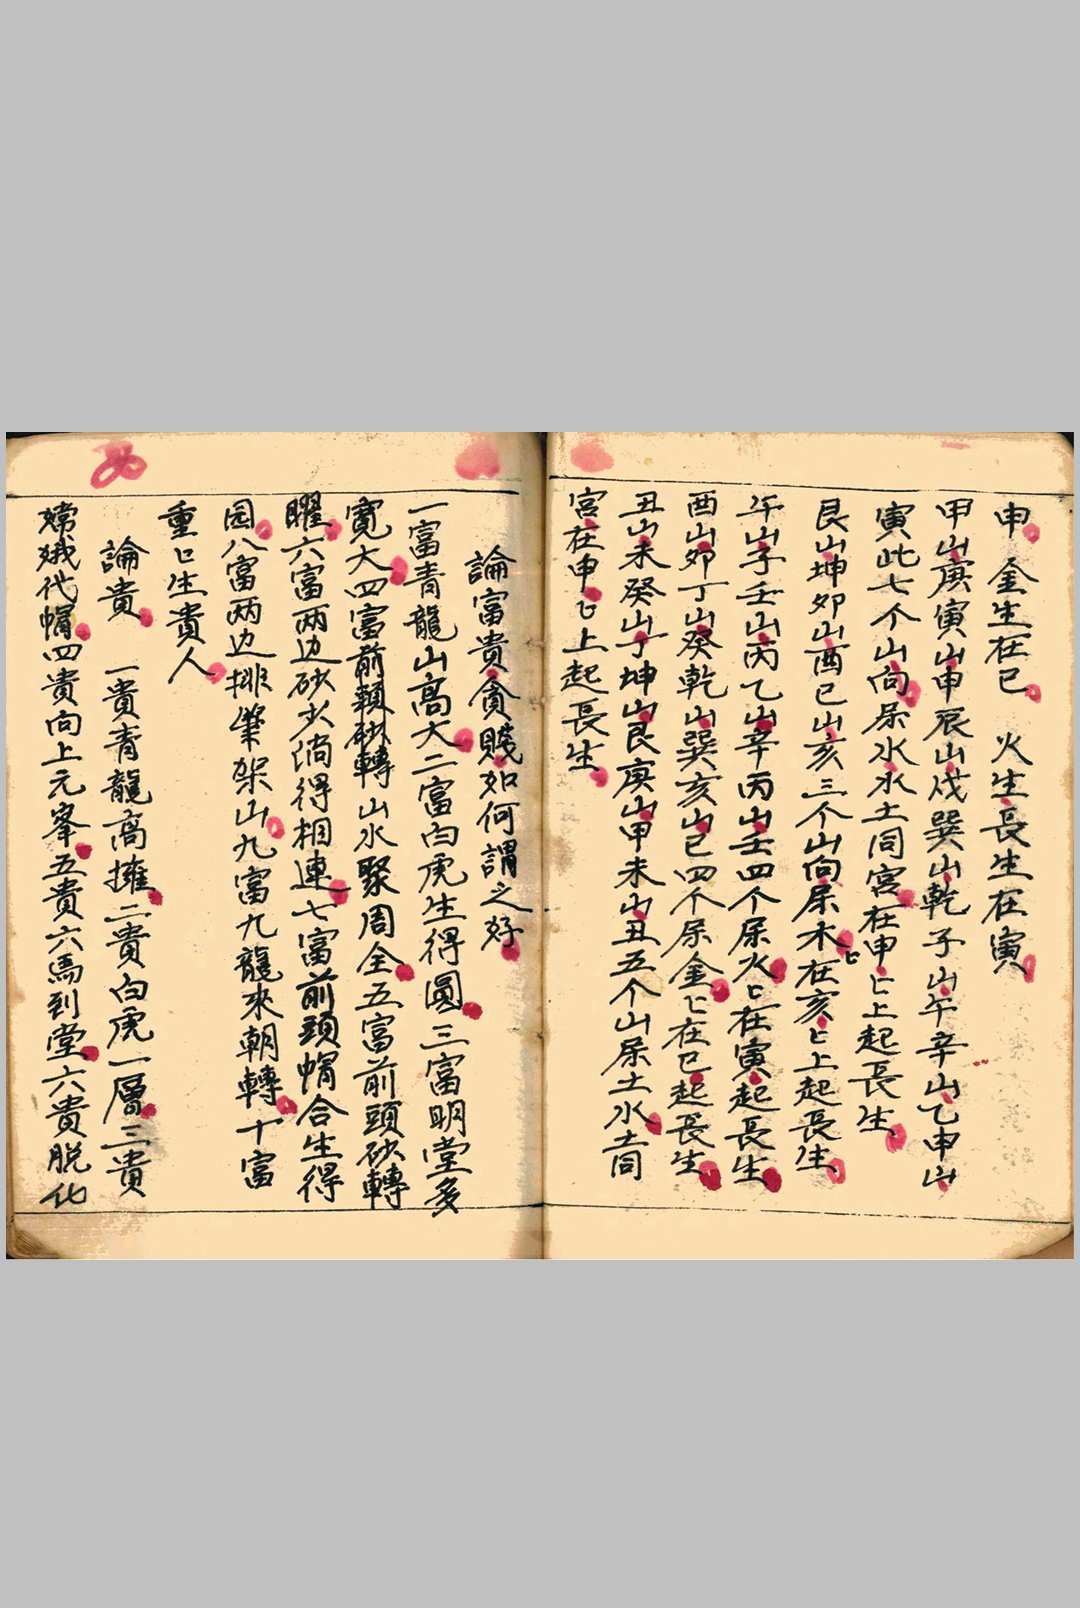 申 金生在巳 火生長生在寅
甲山庚寅山申辰山戌巽山乾子山午辛山乙申山
寅此七个山向屬水水土同宮在申匕上起長生
艮山坤卯山酉巳山亥三个山向屬木匕在亥匕上起長生
午山子壬山丙乙山辛丙山壬四个屬火匕在寅起長生
酉山卯丁山癸乾山巽亥山巳四个屬金匕在巳起長生
丑山未癸山丁坤山艮庚山甲未山丑五个山屬土水土同
宮在申匕上起長生
論富貴貪賤如何謂之好
一富青龍山高大二富白虎生得圓三富明堂多
寬大四富前頼砂轉山水聚周全五富前頭砂轉
曜六富两边砂火倘得相連七富前頭帽合生得
园八富两边排筆架山九富九龍來朝轉十富
重匕生貴人
論貴 一貴青龍高擁二貴白虎一層三貴
嫦娥代帽四貴向上元峯五貴六馬到堂六貴脱化